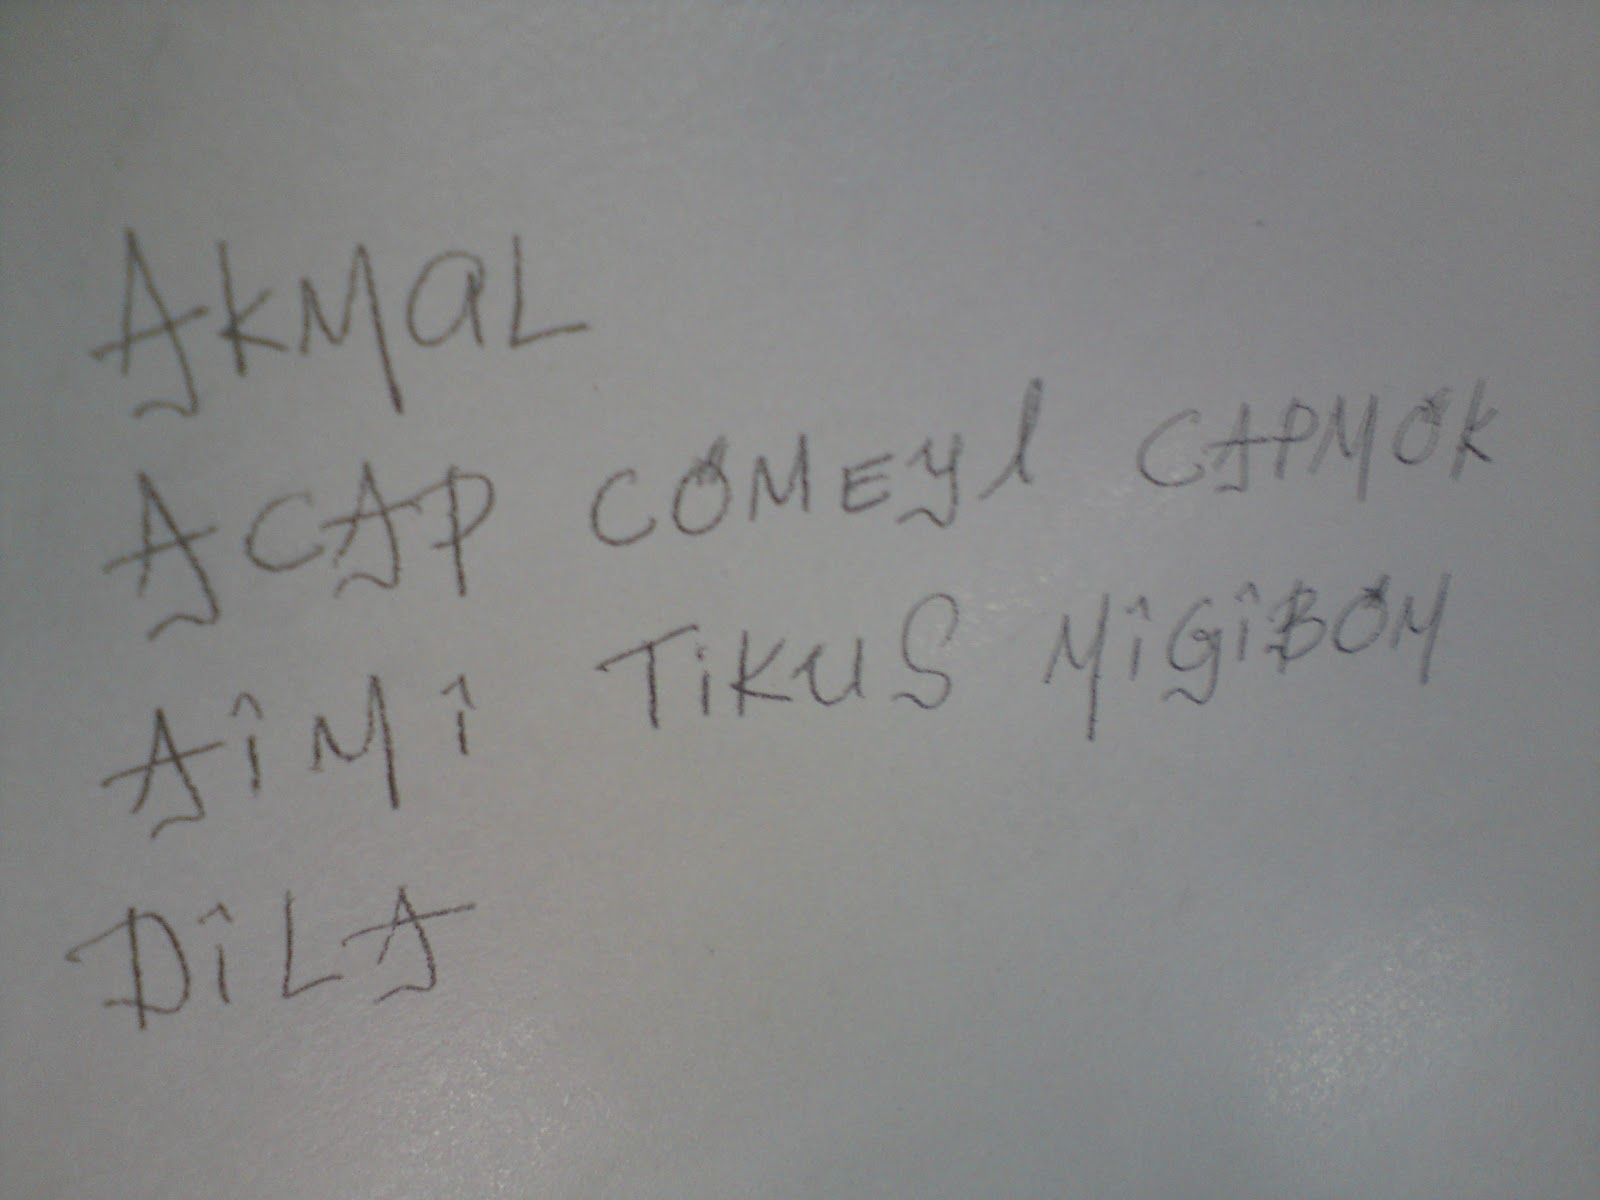 AKMaL
ACAP COMEYl CAPMOK
AîMî TiKUS MîGîBOM
DîLA